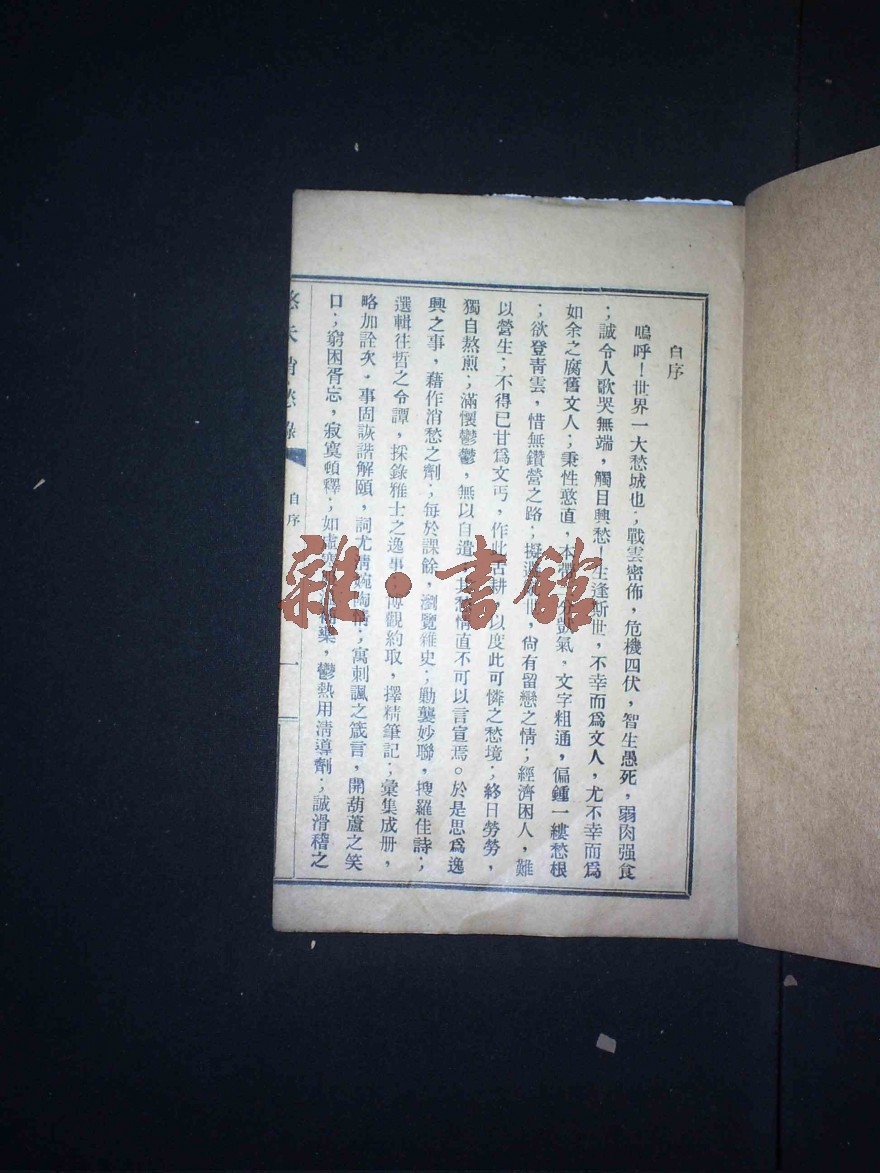 自序
嗚呼！世界一大愁城也；戰雲密佈，危機四伏，智生愚死，弱肉强食
；誠令人歌哭無端，觸目興愁！生逢斯世，不幸而爲文人，尤不幸而爲
如余之腐舊文人；秉性憨直，本氣，文字粗通，偏鍾一縷愁根
；欲登靑雲，惜無鑽營之路；擬世，尙有留戀之情；經濟困人，難
以營生；不得已甘爲文丐，作此舌耕，以度此可憐之愁境；終日勞勞，
獨自熬煎；滿懷鬱鬱，無以自遣，其愁情直不可以言宣焉。於是思爲逸
興之事，藉作消愁之劑；每於課餘，瀏覽雜史；勤襲妙聯，搜羅佳詩；
選輯往哲之令譚，採錄雅士之逸事，博觀約取，擇精筆記；彙集成册，
略加詮次。事固詼諧解頤，詞尤淸婉；寓刺諷之箴言，開葫蘆之笑
口；窮困胥忘，寂寞頓釋；如虛藥，鬱熱用淸導劑；誠滑稽之
愁錄
自序
一
雜·書館